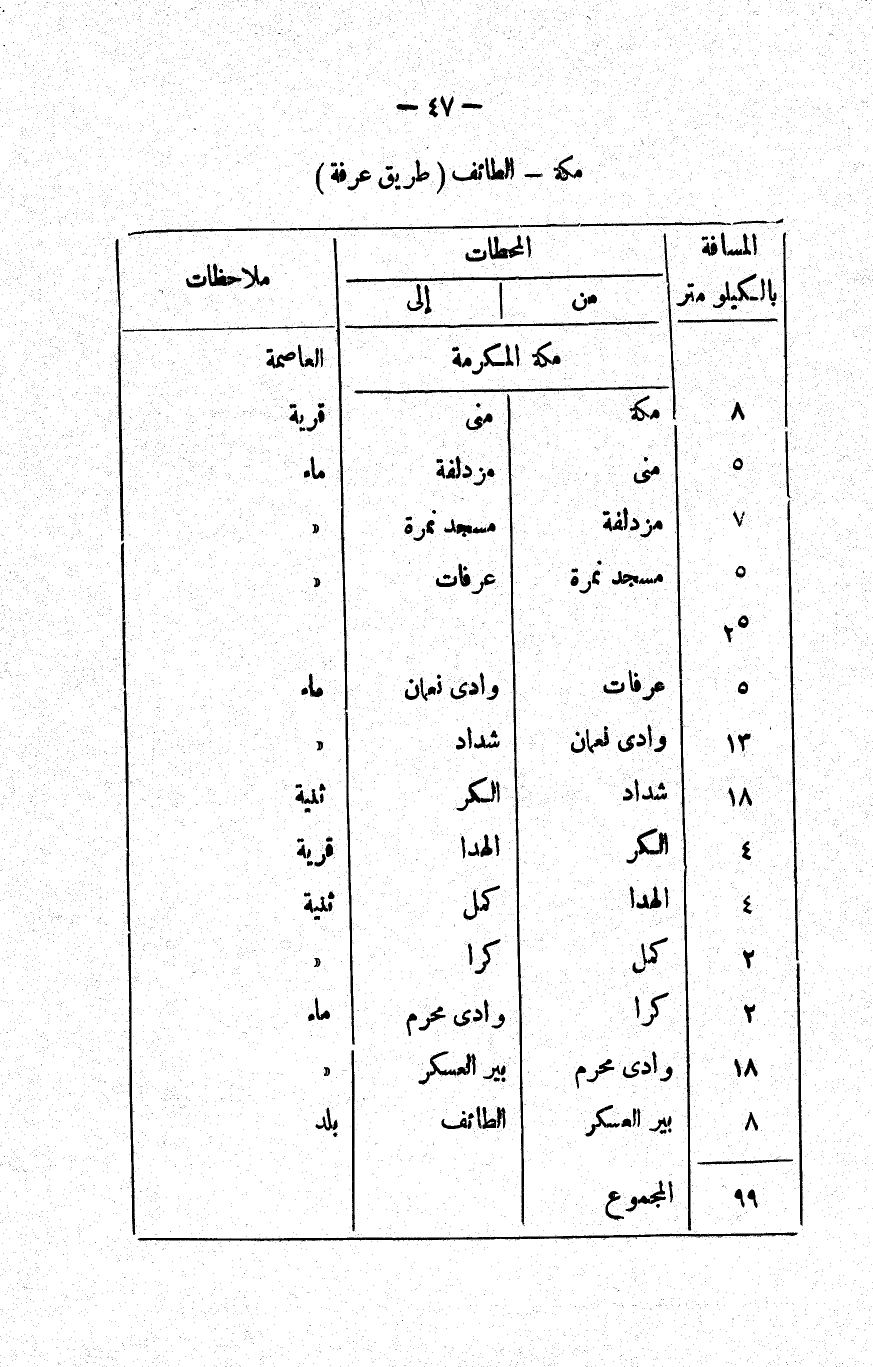 — ٤٧ —
مكة – الطائف ( طريق عرفة )
المسافة بالكيلو متر | المحطات | ملاحظات
من | إلى
مكة المكرمة | العاصمة
٨ | مكة | منى | قرية
٥ | منى | مزدلفة | ماء
٧ | مزدلفة | مسجد نمرة | »
٥ | مسجد نمرة | عرفات | »
٢٥
٥ | عرفات | وادى نعمان | ماء
١٣ | وادى نعمان | شداد | »
١٨ | شداد | الكر | ثنية
٤ | الكر | الهدا | قرية
٤ | الهدا | كمل | ثنية
٢ | كمل | كرا | »
٢ | كرا | وادى محرم | ماء
١٨ | وادى محرم | بير العسكر | »
٨ | بير العسكر | الطائف | بلد
٩٩ | المجموع